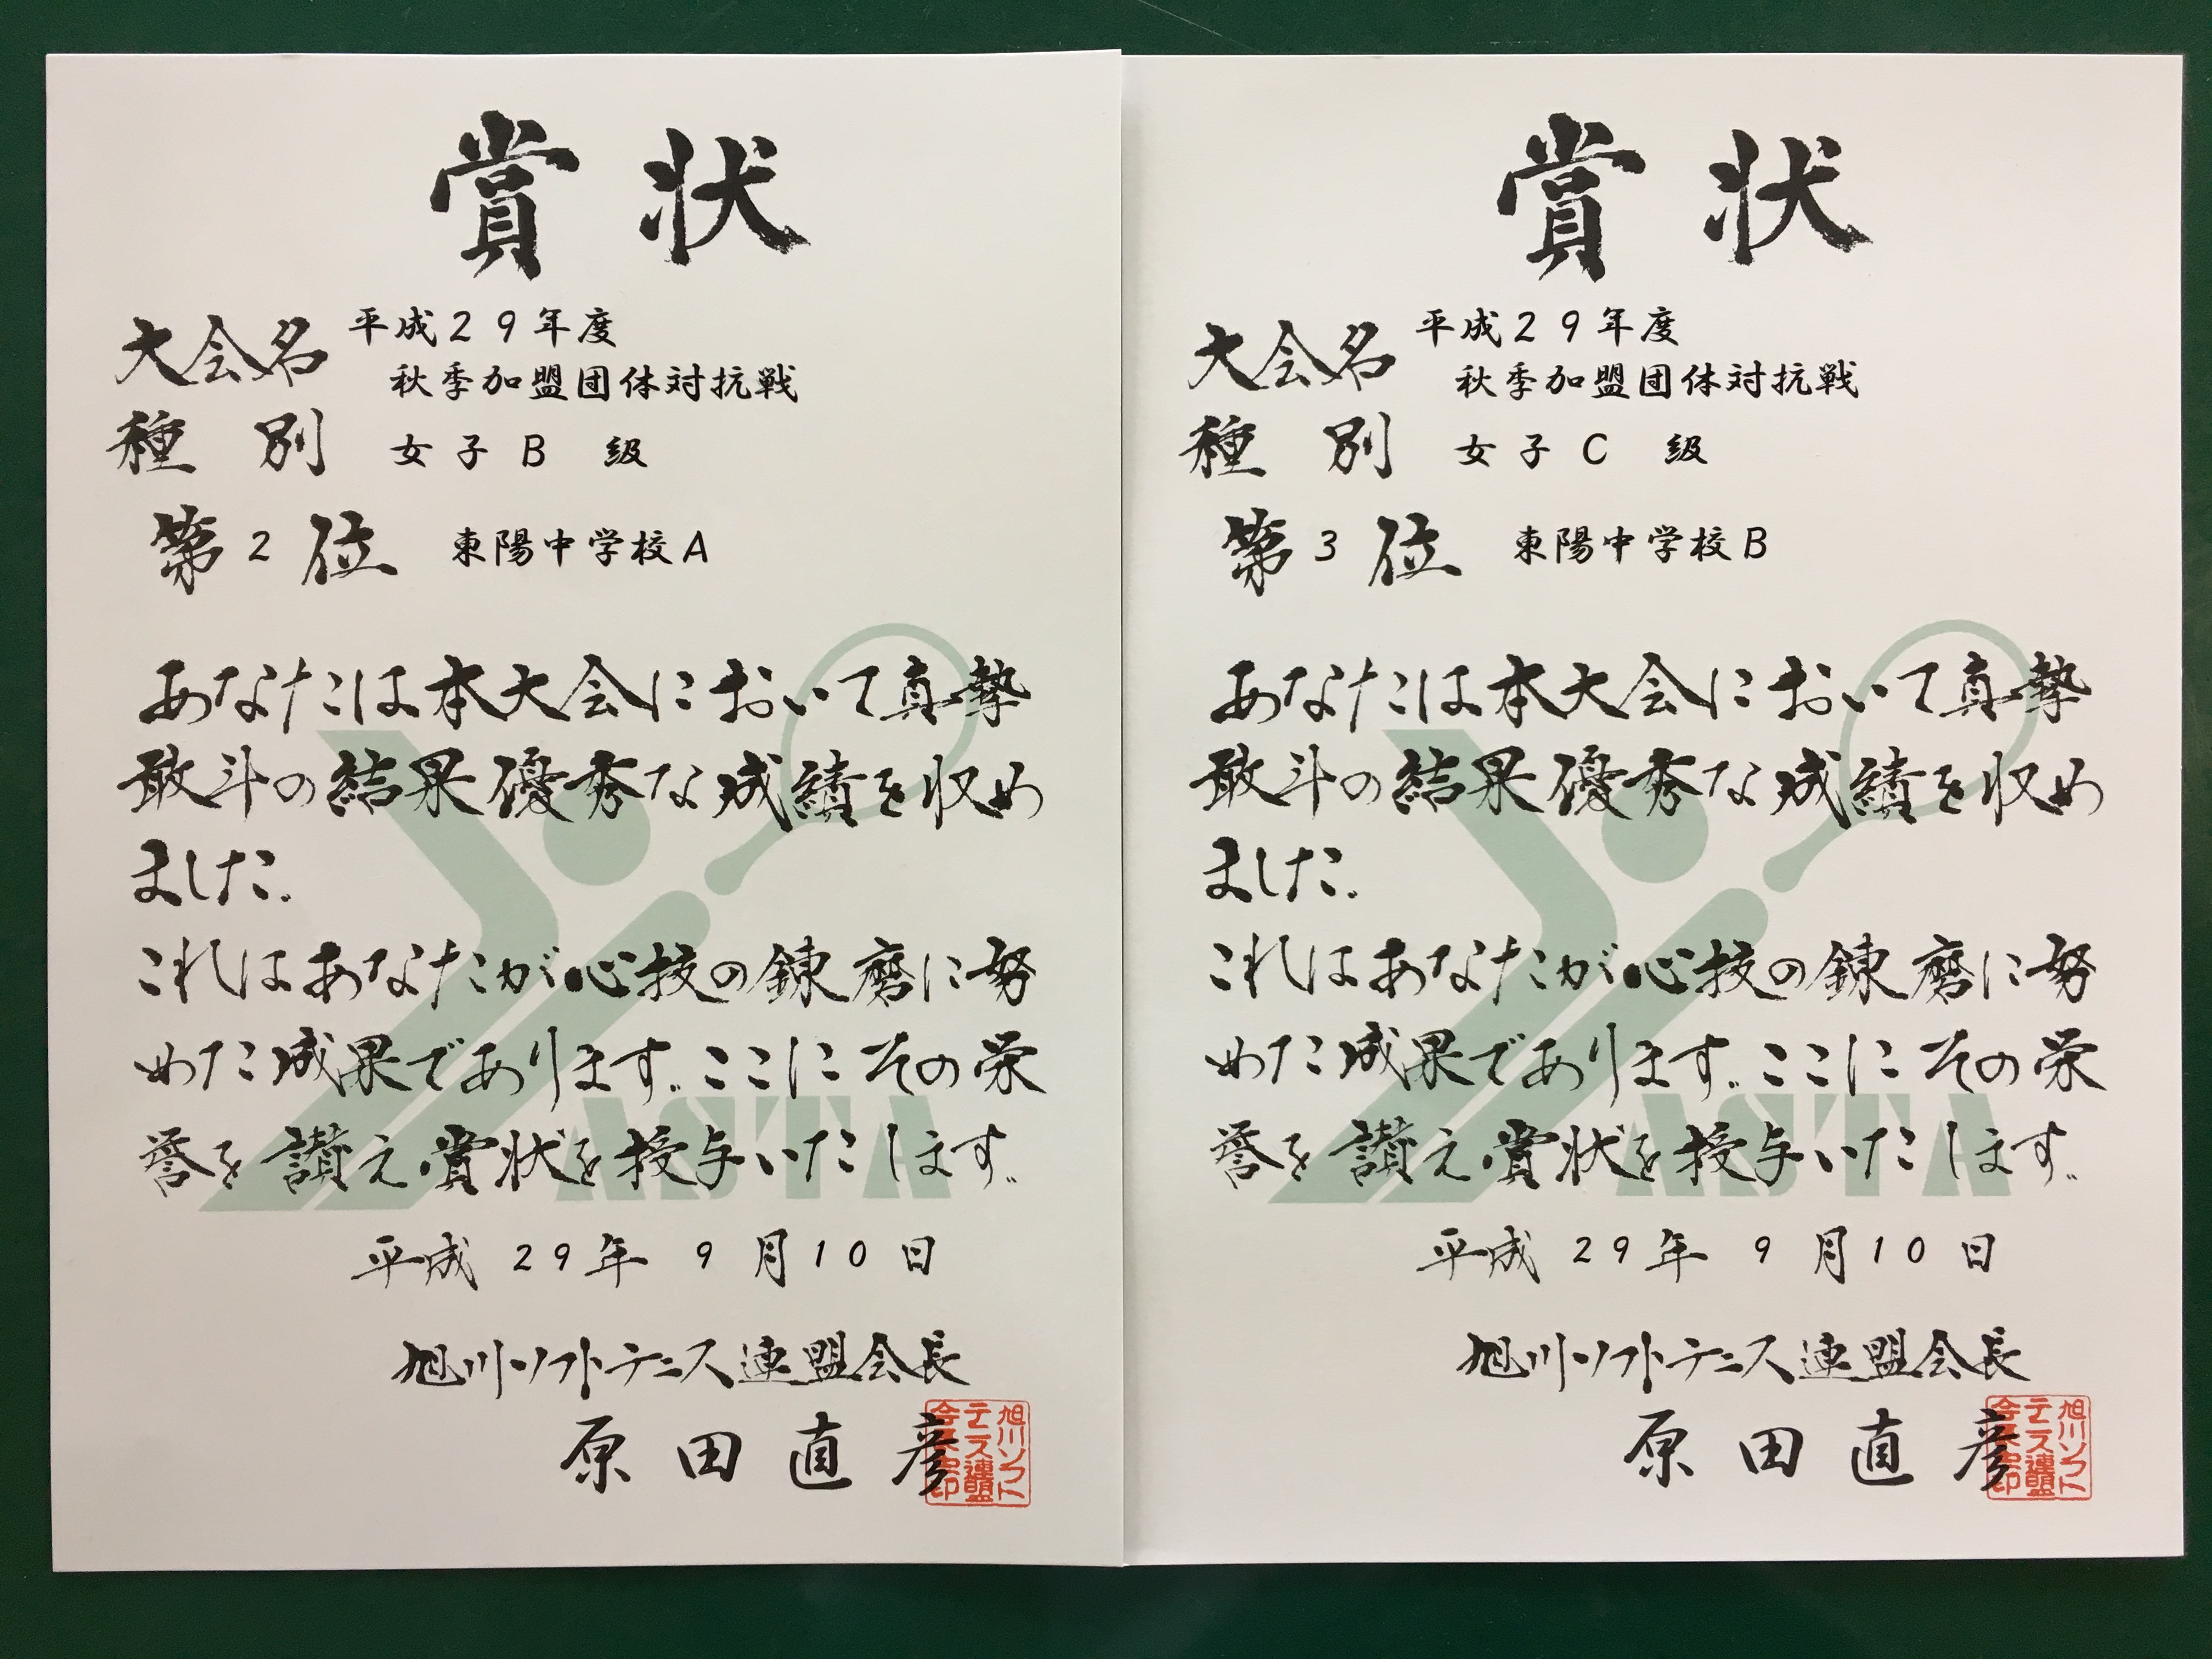 賞状
大会名 平成29年度
秋季加盟団体対抗戦
種別 女子B級
第2位 東陽中学校A
あなたは本大会において真摯
敢斗の結果優秀な成績を収め
ました。
これはあなたが心技の錬磨に努
めた成果であります。ここにその栄
誉を讃え賞状を授与いたします。
ASTA
平成29年9月10日
旭川ソフトテニス連盟会長
原田直彦
旭川ソフト
テニス連盟
会長之印
賞状
大会名 平成29年度
秋季加盟団体対抗戦
種別 女子C級
第3位 東陽中学校B
あなたは本大会において真摯
敢斗の結果優秀な成績を収め
ました。
これはあなたが心技の錬磨に努
めた成果であります。ここにその栄
誉を讃え賞状を授与いたします。
ASTA
平成29年9月10日
旭川ソフトテニス連盟会長
原田直彦
旭川ソフト
テニス連盟
会長之印